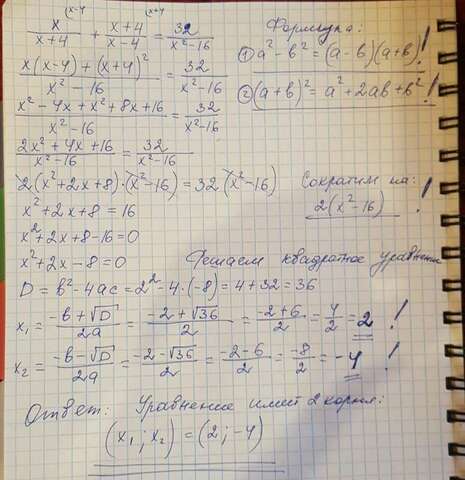 (x-4 (x+4
x/(x+4) + (x+4)/(x-4) = 32/(x²-16)
Формулы:
(x(x-4)+(x+4)²)/(x²-16) = 32/(x²-16)
① a²-b²=(a-b)(a+b)!
(x²-4x+x²+8x+16)/(x²-16) = 32/(x²-16)
② (a+b)²=a²+2ab+b²!
(2x²+4x+16)/(x²-16) = 32/(x²-16)
2(x²+2x+8)·(x²-16)=32(x²-16)
Сократим на:
2(x²-16) !
x²+2x+8=16
x²+2x+8-16=0
x²+2x-8=0
Решаем квадратное уравнение
D=b²-4ac=2²-4·(-8)=4+32=36
x₁=(-b+√D)/2a=(-2+√36)/2=(-2+6)/2=4/2=2 !
x₂=(-b-√D)/2a=(-2-√36)/2=(-2-6)/2=-8/2=-4 !
Ответ: Уравнение имеет 2 корня:
(x₁;x₂)=(2;-4)